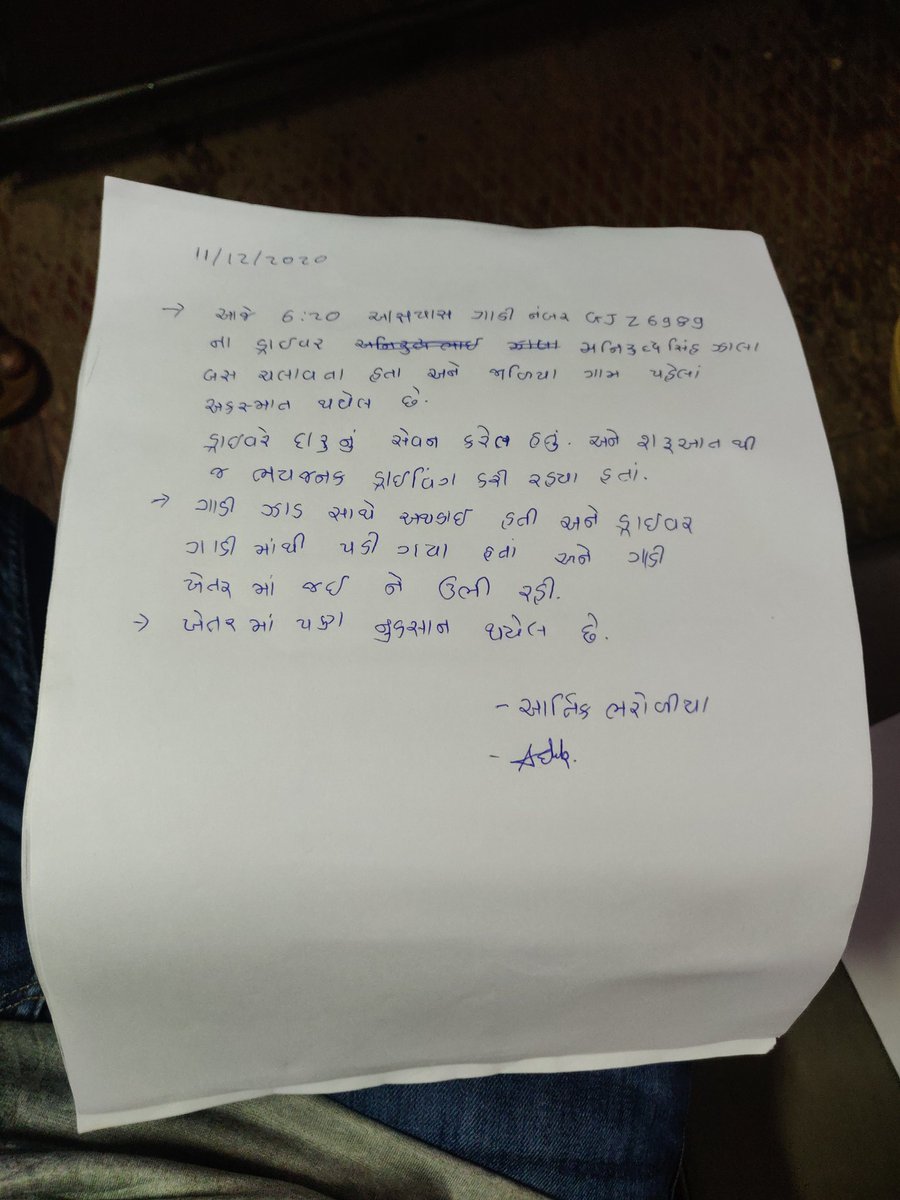 11/12/2020
→ આજે 6:20 આસપાસ ગાડી નંબર GJ Z 6989
ના ડ્રાઈવર મનિરુધ્ધ સિંહ ઝાલા
બસ ચલાવતા હતા અને જાળિયા ગામ પહેલાં
અકસ્માત થયેલ છે.
ડ્રાઈવરે દારૂનું સેવન કરેલ હતું. અને શરૂઆત થી
જ ભયજનક ડ્રાઈવિંગ કરી રહ્યા હતાં.
→ ગાડી ઝાડ સાથે અથડાઈ હતી અને ડ્રાઈવર
ગાડી માંથી પડી ગયા હતાં અને ગાડી
ખેતર માં જઈ ને ઉભી રહી.
→ ખેતર માં પણ નુકસાન થયેલ છે.